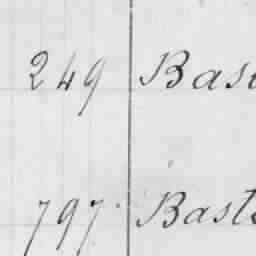 249 Bas
797 Bast